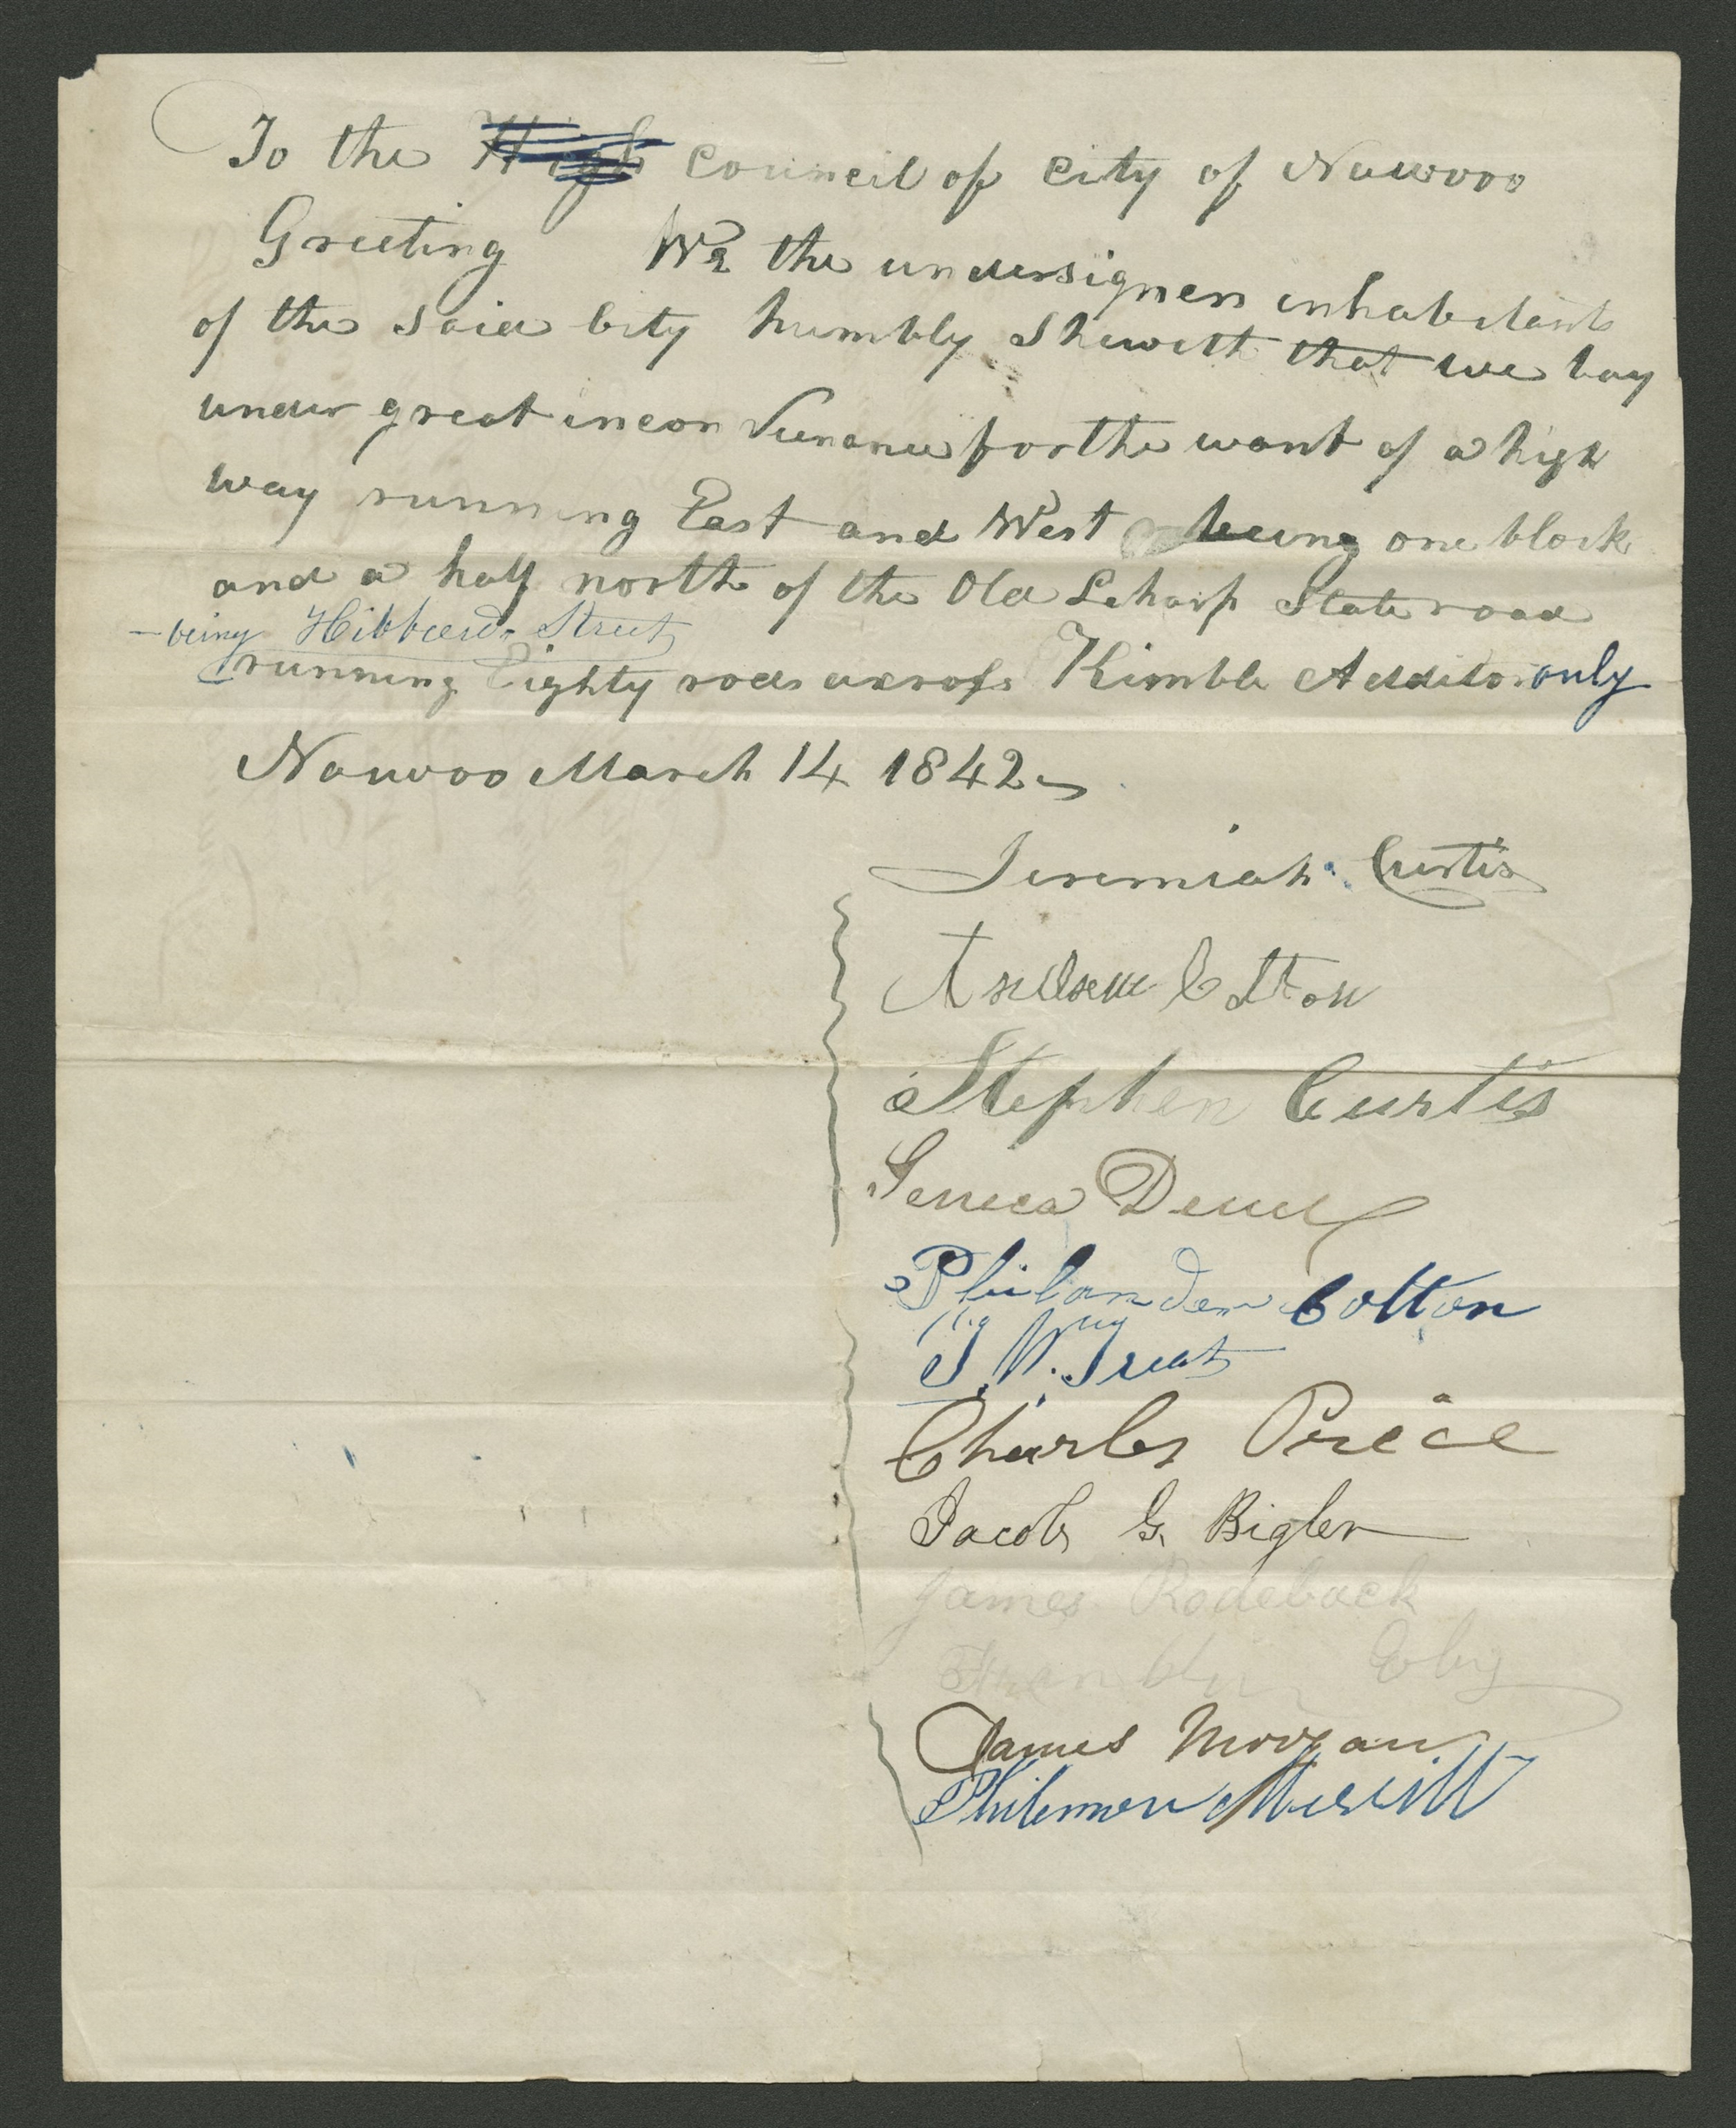 To the High council of City of Nauvoo
Greeting We the undersignen inhabitants
of the said City humbly Sheweth that we lay
under great inconvienance for the want of a high
way running East and West being one block
and a half north of the Old Leharp State road
- being Hibbeerds Street
running Eighty rods across Kimble Addition only
Nauvoo March 14 1842
Jeremiah Curtis
Andrew C
Stephen Curtis
Seneca
Philander Colton
T. W. Treat
Charles Price
Jacob G. Bigler
James Rodeback
Eby
James Morgan
Philemon Merrill